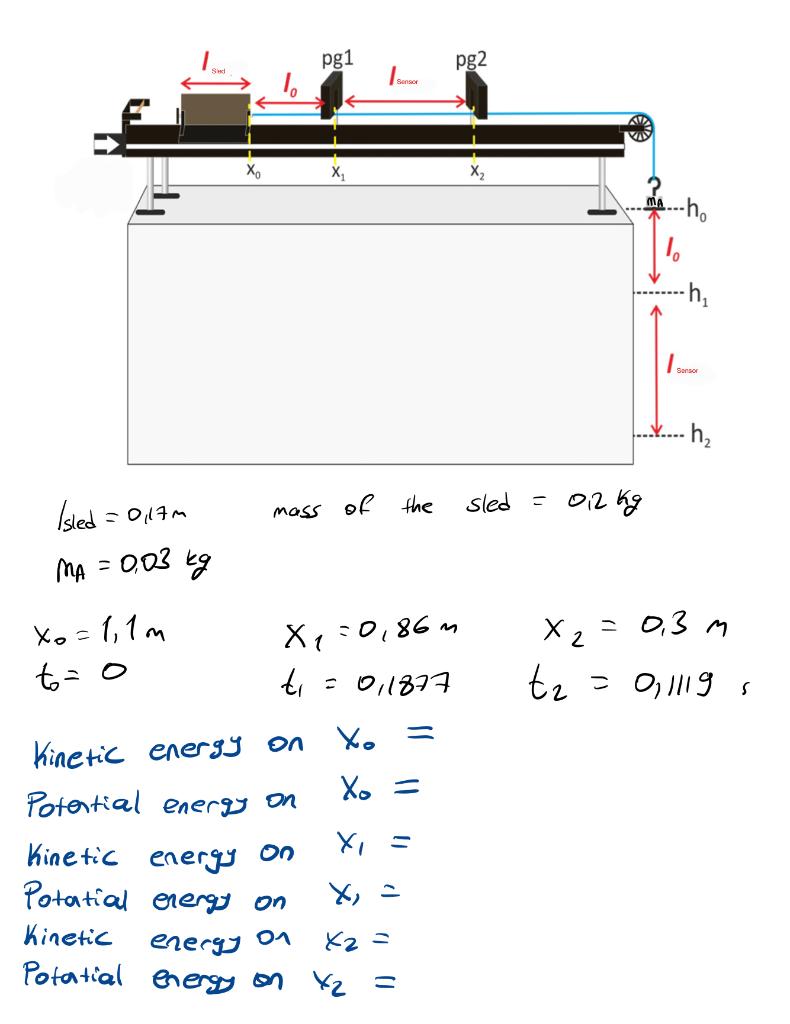 l Sled
l₀
pg1
l Sensor
pg2
x₀
x₁
x₂
?
mA
h₀
l₀
h₁
l Sensor
h₂
lsled = 0,17m mass of the sled = 0,2 kg
mA = 0,03 kg
x₀ = 1,1 m x₁ = 0,86 m x₂ = 0,3 m
t₀ = 0 t₁ = 0,1877 t₂ = 0,1119 s
Kinetic energy on x₀ =
Potential energy on x₀ =
Kinetic energy on x₁ =
Potatial energy on x₁ =
Kinetic energy on x₂ =
Potatial energy on x₂ =